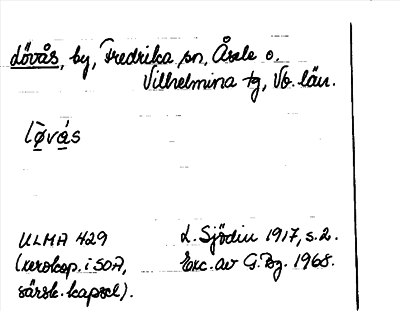 Lövås, by, Fredrika sn, Åsele o.
Vilhelmina tg, Vb. län.
lø̱vá̱s
ULMA 429
(xerokop. i SOA,
särsk. kapsel).
L. Sjödin 1917, s. 2.
Exc. av G. Bg. 1968.